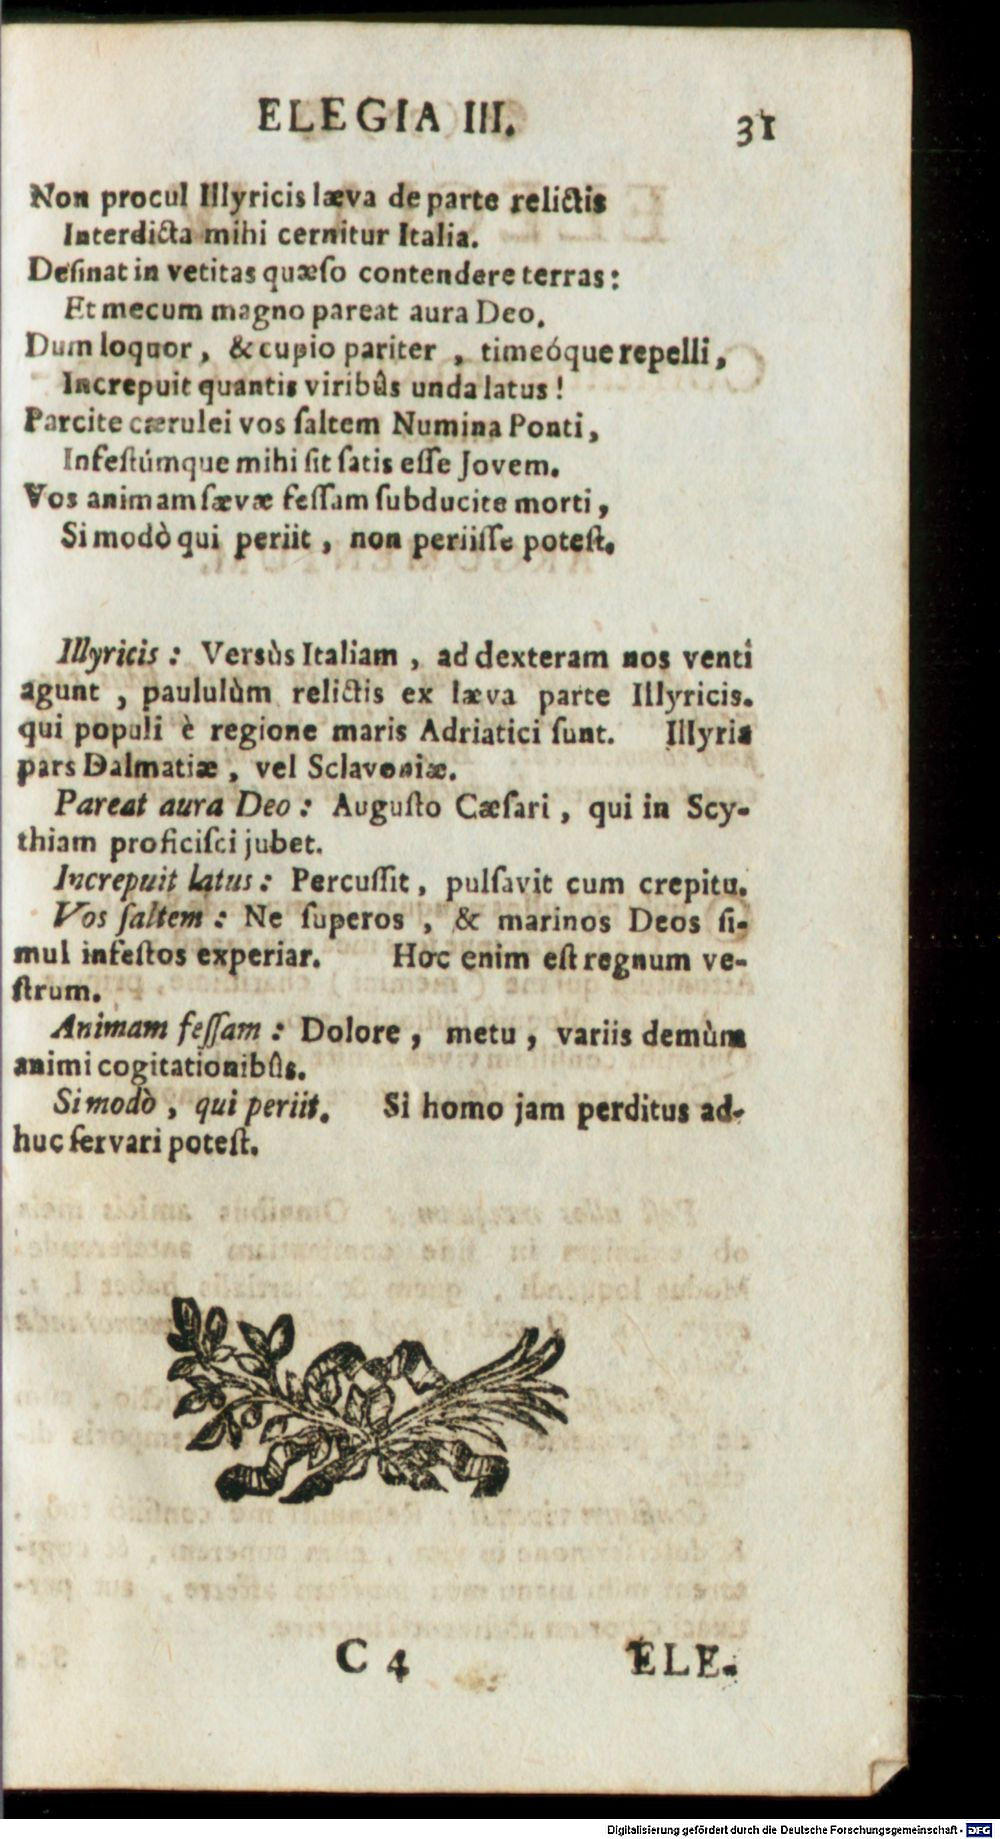 ELEGIA III. 31
Non procul Illyricis læva de parte relictis
Interdicta mihi cernitur Italia.
Deſinat in vetitas quæſo contendere terras:
Et mecum magno pareat aura Deo.
Dum loquor, & cupio pariter, timeóque repelli,
Increpuit quantis viribûs unda latus!
Parcite cærulei vos ſaltem Numina Ponti,
Infeſtúmque mihi ſit ſatis eſſe Jovem.
Vos animam ſævæ feſſam ſubducite morti,
Si modò qui periit, non periiſſe poteſt.
Illyricis: Versùs Italiam, ad dexteram nos venti
agunt, paululùm relictis ex læva parte Illyricis.
qui populi è regione maris Adriatici ſunt. Illyria
pars Dalmatiæ, vel Sclavoniæ.
Pareat aura Deo: Auguſto Cæſari, qui in Scy-
thiam proficiſci jubet.
Increpuit latus: Percuſſit, pulſavit cum crepitu.
Vos ſaltem: Ne ſuperos, & marinos Deos ſi-
mul infeſtos experiar. Hoc enim eſt regnum ve-
ſtrum.
Animam feſſam: Dolore, metu, variis demùm
animi cogitationibûs.
Si modò, qui periit. Si homo jam perditus ad-
huc ſervari poteſt.
C 4 ELE.
Digitalisierung gefördert durch die Deutsche Forschungsgemeinschaft - DFG